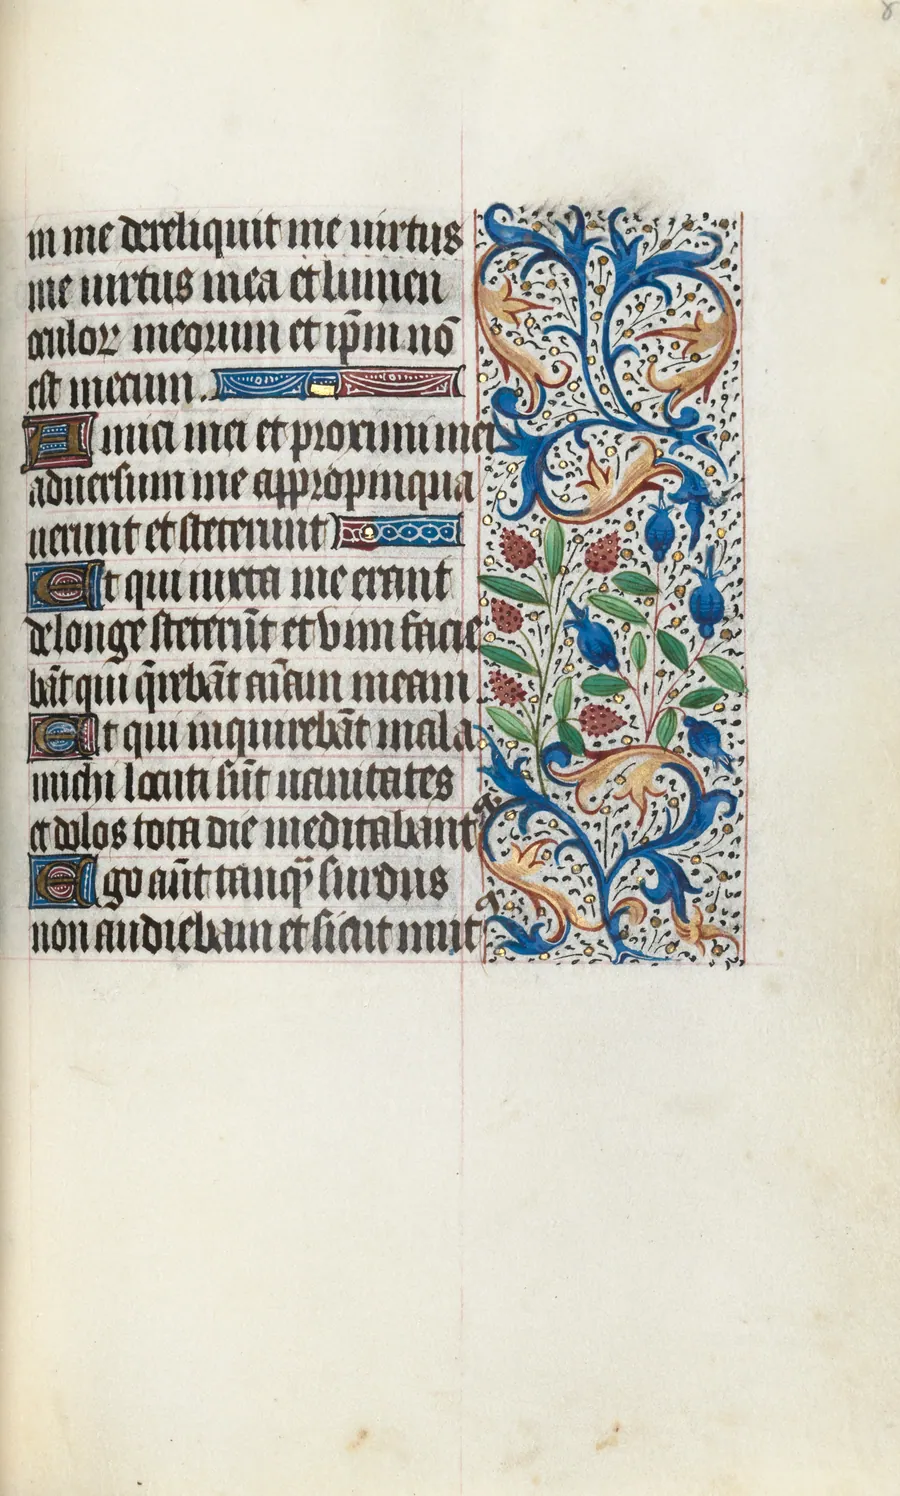 in me dereliquit me uirtus
me uirtus mea et lumen
oculoꝝ meorum et ip̄m nō
est mecum.
Amici mei et proximi mei
aduersum me appropinqua
uerunt et steterunt
Et qui iuxta me erant
de longe steterūt et vim facie
bāt qui q̄rebāt aīam meam
Et qui inquirebāt mala
michi locuti sūt uanitates
et dolos tota die meditabant᷑
Ego aūt tanqꝫ surdus
non audiebam et sicut mut᷒